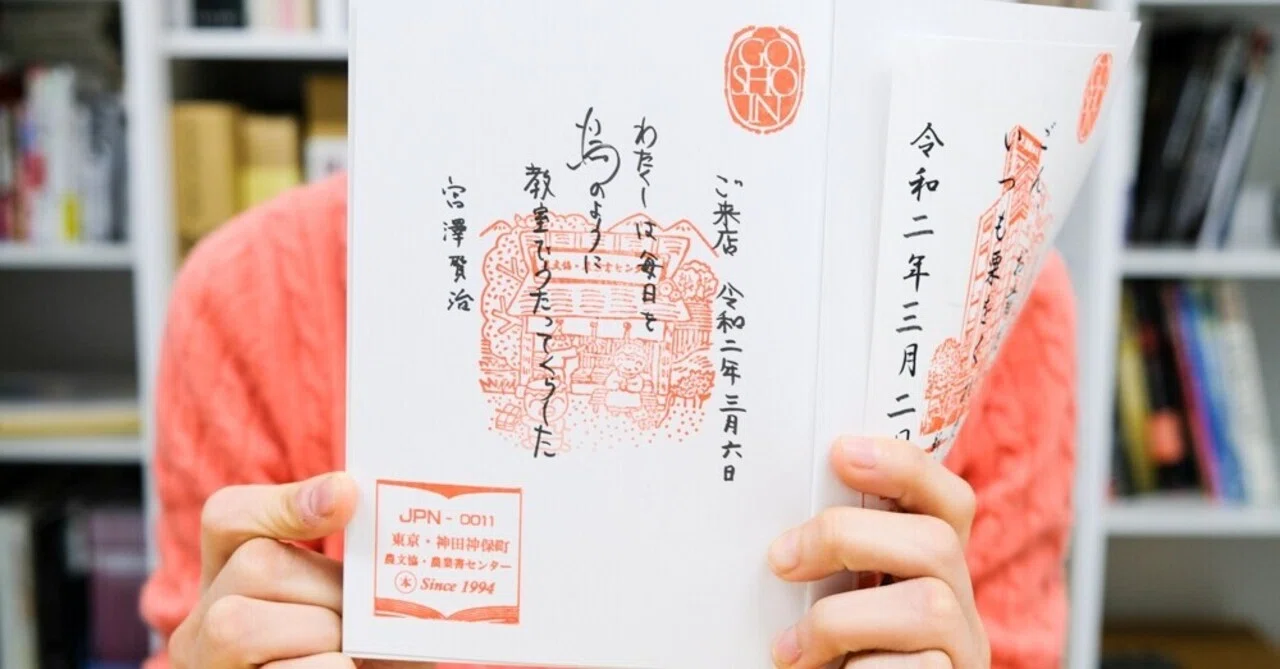 GO
SHO
IN
ご来店 令和二年三月六日
わたくしは毎日を
鳥のように
教室でうたってくらした
宮澤賢治
文協・ 書センター
JPN - 0011
東京・神田神保町
農文協・農業書センター
本 Since 1994
ごん、お
いつも栗をく
令和二年三月二日